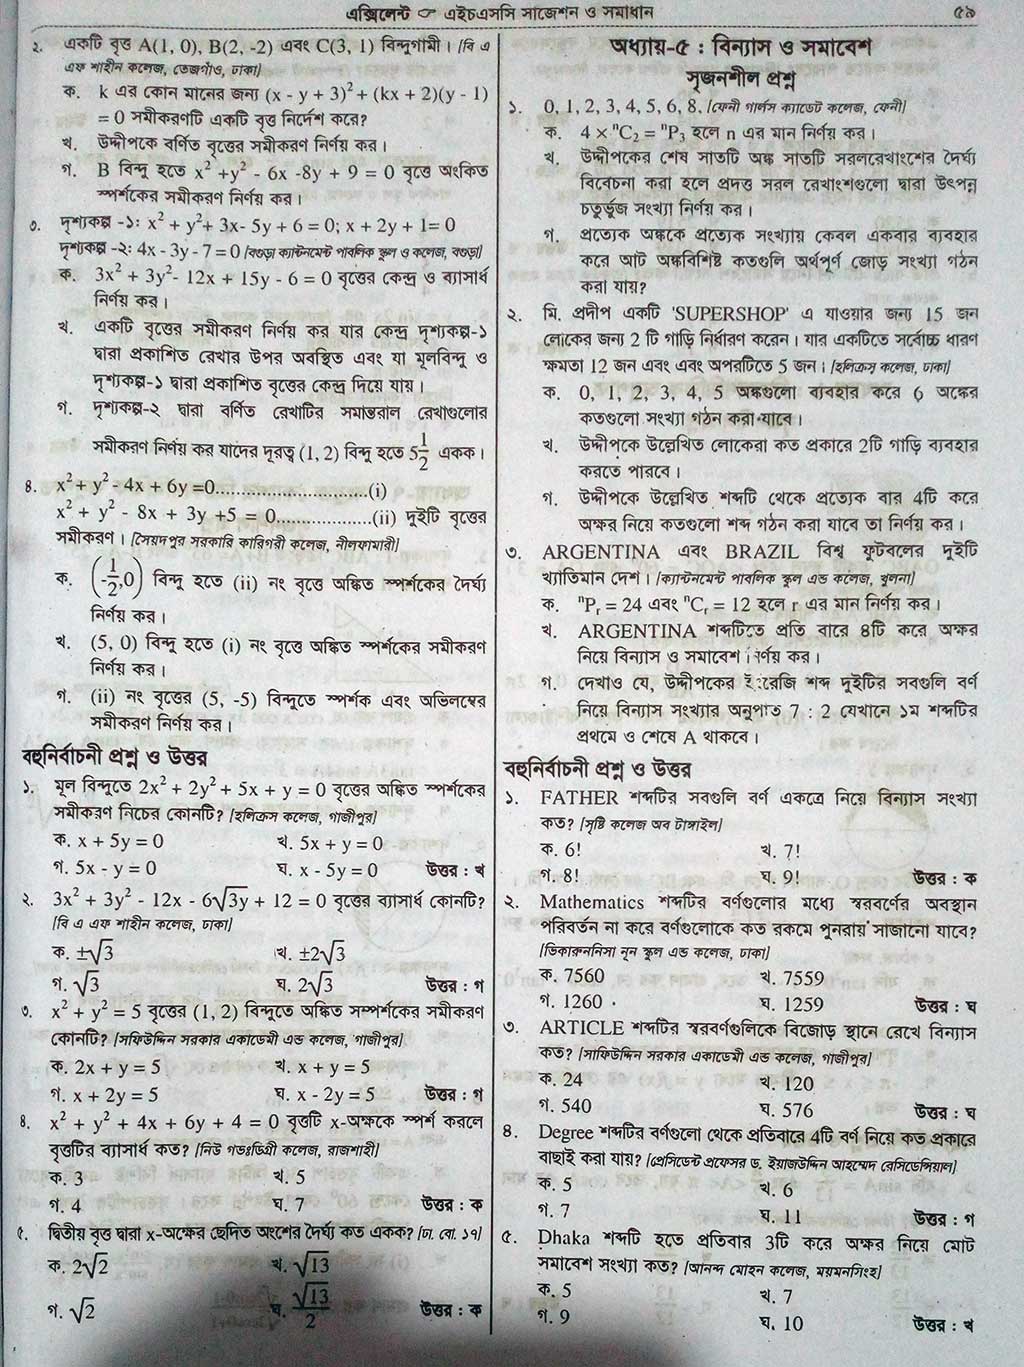 এক্সিলেন্ট ☞ এইচএসসি সাজেশন ও সমাধান ৫৯
২. একটি বৃত্ত A(1, 0), B(2, -2) এবং C(3, 1) বিন্দুগামী। [বি এ
এফ শাহীন কলেজ, তেজগাঁও, ঢাকা]
ক. k এর কোন মানের জন্য (x - y + 3)² + (kx + 2)(y - 1)
= 0 সমীকরণটি একটি বৃত্ত নির্দেশ করে?
খ. উদ্দীপকে বর্ণিত বৃত্তের সমীকরণ নির্ণয় কর।
গ. B বিন্দু হতে x² +y² - 6x -8y + 9 = 0 বৃত্তে অংকিত
স্পর্শকের সমীকরণ নির্ণয় কর।
৩. দৃশ্যকল্প -১: x² + y²+ 3x- 5y + 6 = 0; x + 2y + 1= 0
দৃশ্যকল্প -২: 4x - 3y - 7 = 0 [বগুড়া ক্যান্টনমেন্ট পাবলিক স্কুল ও কলেজ, বগুড়া]
ক. 3x² + 3y²- 12x + 15y - 6 = 0 বৃত্তের কেন্দ্র ও ব্যাসার্ধ
নির্ণয় কর।
খ. একটি বৃত্তের সমীকরণ নির্ণয় কর যার কেন্দ্র দৃশ্যকল্প-১
দ্বারা প্রকাশিত রেখার উপর অবস্থিত এবং যা মূলবিন্দু ও
দৃশ্যকল্প-১ দ্বারা প্রকাশিত বৃত্তের কেন্দ্র দিয়ে যায়।
গ. দৃশ্যকল্প-২ দ্বারা বর্ণিত রেখাটির সমান্তরাল রেখাগুলোর
সমীকরণ নির্ণয় কর যাদের দূরত্ব (1, 2) বিন্দু হতে 5 1/2 একক।
৪. x² + y² - 4x + 6y =0..............................(i)
x² + y² - 8x + 3y +5 = 0...................(ii) দুইটি বৃত্তের
সমীকরণ। [সৈয়দপুর সরকারি কারিগরী কলেজ, নীলফামারী]
ক. (-1/2,0) বিন্দু হতে (ii) নং বৃত্তে অঙ্কিত স্পর্শকের দৈর্ঘ্য
নির্ণয় কর।
খ. (5, 0) বিন্দু হতে (i) নং বৃত্তে অঙ্কিত স্পর্শকের সমীকরণ
নির্ণয় কর।
গ. (ii) নং বৃত্তের (5, -5) বিন্দুতে স্পর্শক এবং অভিলম্বের
সমীকরণ নির্ণয় কর।
বহুনির্বাচনী প্রশ্ন ও উত্তর
১. মূল বিন্দুতে 2x² + 2y² + 5x + y = 0 বৃত্তের অঙ্কিত স্পর্শকের
সমীকরণ নিচের কোনটি? [হলিক্রস কলেজ, গাজীপুর]
ক. x + 5y = 0 খ. 5x + y = 0
গ. 5x - y = 0 ঘ. x - 5y = 0 উত্তর : খ
২. 3x² + 3y² - 12x - 6√3y + 12 = 0 বৃত্তের ব্যাসার্ধ কোনটি?
[বি এ এফ শাহীন কলেজ, ঢাকা]
ক. ±√3 খ. ±2√3
গ. √3 ঘ. 2√3 উত্তর : গ
৩. x² + y² = 5 বৃত্তের (1, 2) বিন্দুতে অঙ্কিত সম্পর্শকের সমীকরণ
কোনটি? [সফিউদ্দিন সরকার একাডেমী এন্ড কলেজ, গাজীপুর]
ক. 2x + y = 5 খ. x + y = 5
গ. x + 2y = 5 ঘ. x - 2y = 5 উত্তর : গ
৪. x² + y² + 4x + 6y + 4 = 0 বৃত্তটি x-অক্ষকে স্পর্শ করলে
বৃত্তটির ব্যাসার্ধ কত? [নিউ গভঃডিগ্রী কলেজ, রাজশাহী]
ক. 3 খ. 5
গ. 4 ঘ. 7 উত্তর : ক
৫. দ্বিতীয় বৃত্ত দ্বারা x-অক্ষের ছেদিত অংশের দৈর্ঘ্য কত একক? [ঢা. বো. ১৭]
ক. 2√2 খ. √13
গ. √2 ঘ. √13/2 উত্তর : ক
অধ্যায়-৫ : বিন্যাস ও সমাবেশ
সৃজনশীল প্রশ্ন
১. 0, 1, 2, 3, 4, 5, 6, 8, [ফেনী গার্লস ক্যাডেট কলেজ, ফেনী]
ক. 4 × ⁿC₂ = ⁿP₃ হলে n এর মান নির্ণয় কর।
খ. উদ্দীপকের শেষ সাতটি অঙ্ক সাতটি সরলরেখাংশের দৈর্ঘ্য
বিবেচনা করা হলে প্রদত্ত সরল রেখাংশগুলো দ্বারা উৎপন্ন
চতুর্ভুজ সংখ্যা নির্ণয় কর।
গ. প্রত্যেক অঙ্ককে প্রত্যেক সংখ্যায় কেবল একবার ব্যবহার
করে আট অঙ্কবিশিষ্ট কতগুলি অর্থপূর্ণ জোড় সংখ্যা গঠন
করা যায়?
২. মি. প্রদীপ একটি 'SUPERSHOP' এ যাওয়ার জন্য 15 জন
লোকের জন্য 2 টি গাড়ি নির্ধারণ করেন। যার একটিতে সর্বোচ্চ ধারণ
ক্ষমতা 12 জন এবং এবং অপরটিতে 5 জন। [হলিক্রস কলেজ, ঢাকা]
ক. 0, 1, 2, 3, 4, 5 অঙ্কগুলো ব্যবহার করে 6 অঙ্কের
কতগুলো সংখ্যা গঠন করা যাবে।
খ. উদ্দীপকে উল্লেখিত লোকেরা কত প্রকারে 2টি গাড়ি ব্যবহার
করতে পারবে।
গ. উদ্দীপকে উল্লেখিত শব্দটি থেকে প্রত্যেক বার 4টি করে
অক্ষর নিয়ে কতগুলো শব্দ গঠন করা যাবে তা নির্ণয় কর।
৩. ARGENTINA এবং BRAZIL বিশ্ব ফুটবলের দুইটি
খ্যাতিমান দেশ। [ক্যান্টনমেন্ট পাবলিক স্কুল এন্ড কলেজ, খুলনা]
ক. ⁿPᵣ = 24 এবং ⁿCᵣ = 12 হলে r এর মান নির্ণয় কর।
খ. ARGENTINA শব্দটিতে প্রতি বারে ৪টি করে অক্ষর
নিয়ে বিন্যাস ও সমাবেশ নির্ণয় কর।
গ. দেখাও যে, উদ্দীপকের ইংরেজি শব্দ দুইটির সবগুলি বর্ণ
নিয়ে বিন্যাস সংখ্যার অনুপাত 7 : 2 যেখানে ১ম শব্দটির
প্রথমে ও শেষে A থাকবে।
বহুনির্বাচনী প্রশ্ন ও উত্তর
১. FATHER শব্দটির সবগুলি বর্ণ একত্রে নিয়ে বিন্যাস সংখ্যা
কত? [সৃষ্টি কলেজ অব টাঙ্গাইল]
ক. 6! খ. 7!
গ. 8! ঘ. 9! উত্তর : ক
২. Mathematics শব্দটির বর্ণগুলোর মধ্যে স্বরবর্ণের অবস্থান
পরিবর্তন না করে বর্ণগুলোকে কত রকমে পুনরায় সাজানো যাবে?
[ভিকারুননিসা নূন স্কুল এন্ড কলেজ, ঢাকা]
ক. 7560 খ. 7559
গ. 1260 ঘ. 1259 উত্তর : ঘ
৩. ARTICLE শব্দটির স্বরবর্ণগুলিকে বিজোড় স্থানে রেখে বিন্যাস
কত? [সাফিউদ্দিন সরকার একাডেমী এন্ড কলেজ, গাজীপুর]
ক. 24 খ. 120
গ. 540 ঘ. 576 উত্তর : ঘ
৪. Degree শব্দটির বর্ণগুলো থেকে প্রতিবারে 4টি বর্ণ নিয়ে কত প্রকারে
বাছাই করা যায়? [প্রেসিডেন্ট প্রফেসর ড. ইয়াজউদ্দিন আহম্মেদ রেসিডেন্সিয়াল]
ক. 5 খ. 6
গ. 7 ঘ. 11 উত্তর : গ
৫. Dhaka শব্দটি হতে প্রতিবার 3টি করে অক্ষর নিয়ে মোট
সমাবেশ সংখ্যা কত? [আনন্দ মোহন কলেজ, ময়মনসিংহ]
ক. 5 খ. 7
গ. 9 ঘ. 10 উত্তর : খ